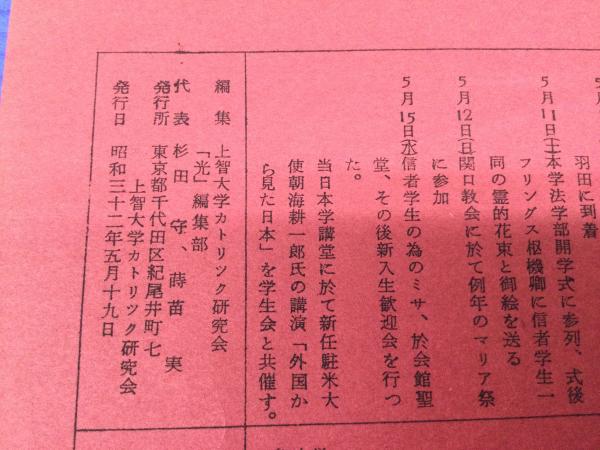 羽田に到着
5月11日(土)本学法学部開学式に参列、式後
フリングス枢機卿に信者学生一
同の霊的花束と御絵を送る
5月12日(日)関口教会に於て例年のマリア祭
に参加
5月15日(水)信者学生の為のミサ、於会館聖
堂、その後新入生歓迎会を行つ
た。
当日本学講堂に於て新任駐米大
使朝海耕一郎氏の講演「外国か
ら見た日本」を学生会と共催す。
編集 上智大学カトリツク研究会
「光」編集部
代表 杉田 守、蒔苗 実
発行所 東京都千代田区紀尾井町七
上智大学カトリツク研究会
発行日 昭和三十二年五月十九日